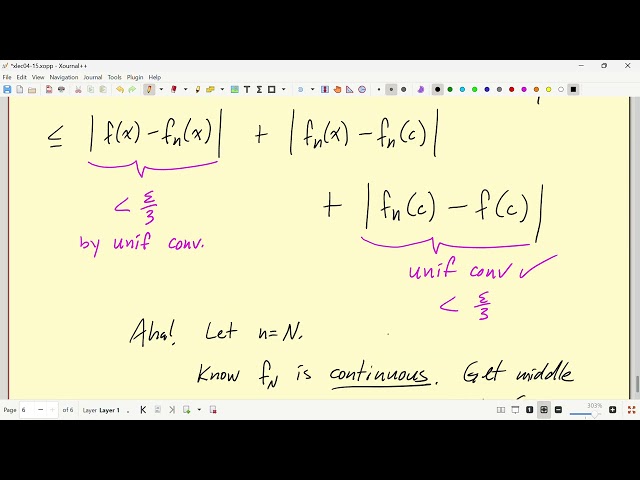 *xlec04-15.xopp - Xournal++
File Edit View Navigation Journal Tools Plugin Help
≤ |f(x) - fn(x)| + |fn(x) - fn(c)|
< ε/3
by unif conv.
+ |fn(c) - f(c)|
unif conv ✓
< ε/3
Aha! Let n=N.
Know fN is continuous. Get middle
Page 6 of 6 Layer Layer 1 303%